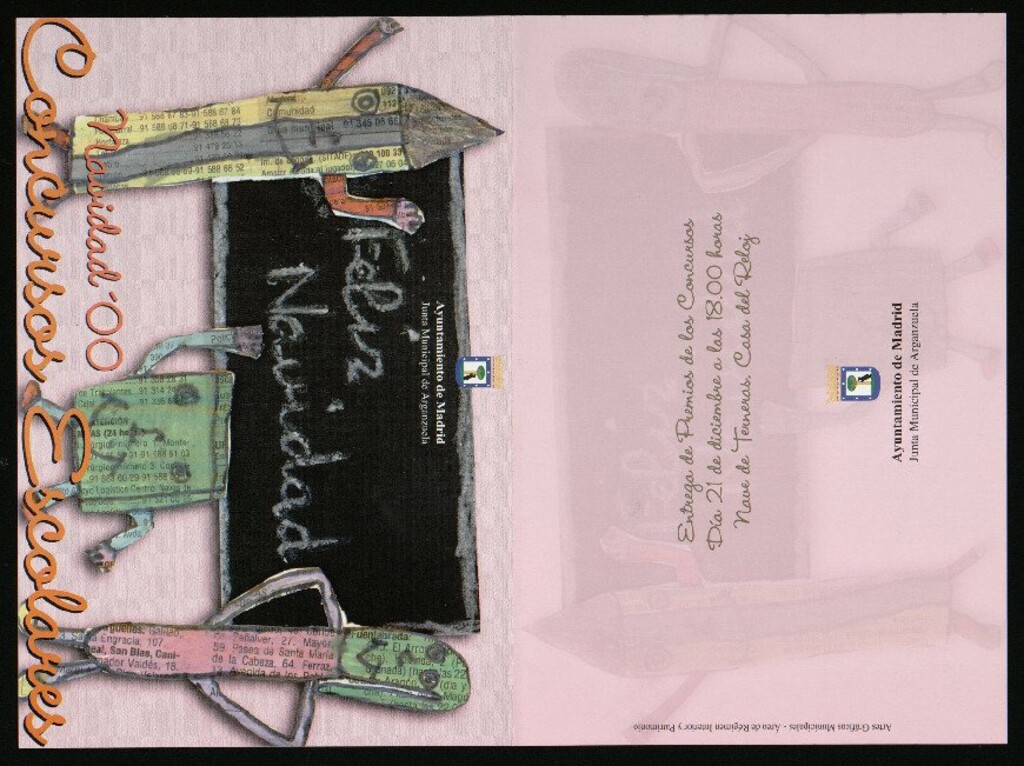 Concursos Escolares
Navidad '00
Feliz
Navidad
Ayuntamiento de Madrid
Junta Municipal de Arganzuela
Entrega de Premios de los Concursos
Día 21 de diciembre a las 18.00 horas
Nave de Terneras. Casa del Reloj
Ayuntamiento de Madrid
Junta Municipal de Arganzuela
Artes Gráficas Municipales - Área de Régimen Interior y Patrimonio